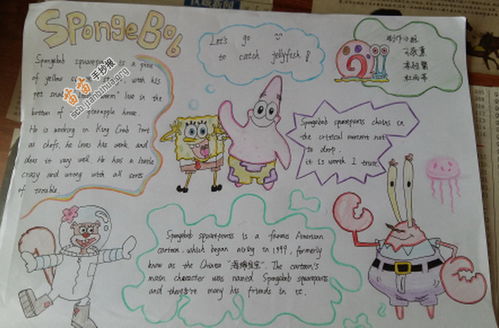 SPongeBob
Spongebob squarepants is a pice
of yellow with his
pet live in the
bottom pineapple house.
He is working in King Crab Foot
as chef, he loves his work and
does it very well. He has a
crazy and with all sorts
of
苗苗手抄报
Let's go
to catch jellyfish!
制作小组
Spongebob squarepants chains in
the critical moment not
to drop,
it is worth I trust.
Spongebob squarepants is a famous American
cartoon, which began airing in 1999, formerly
know as the Chinese "海绵宝宝". The cartoon's
main character was named Spongebob squarepants
and they're many his friends in it.